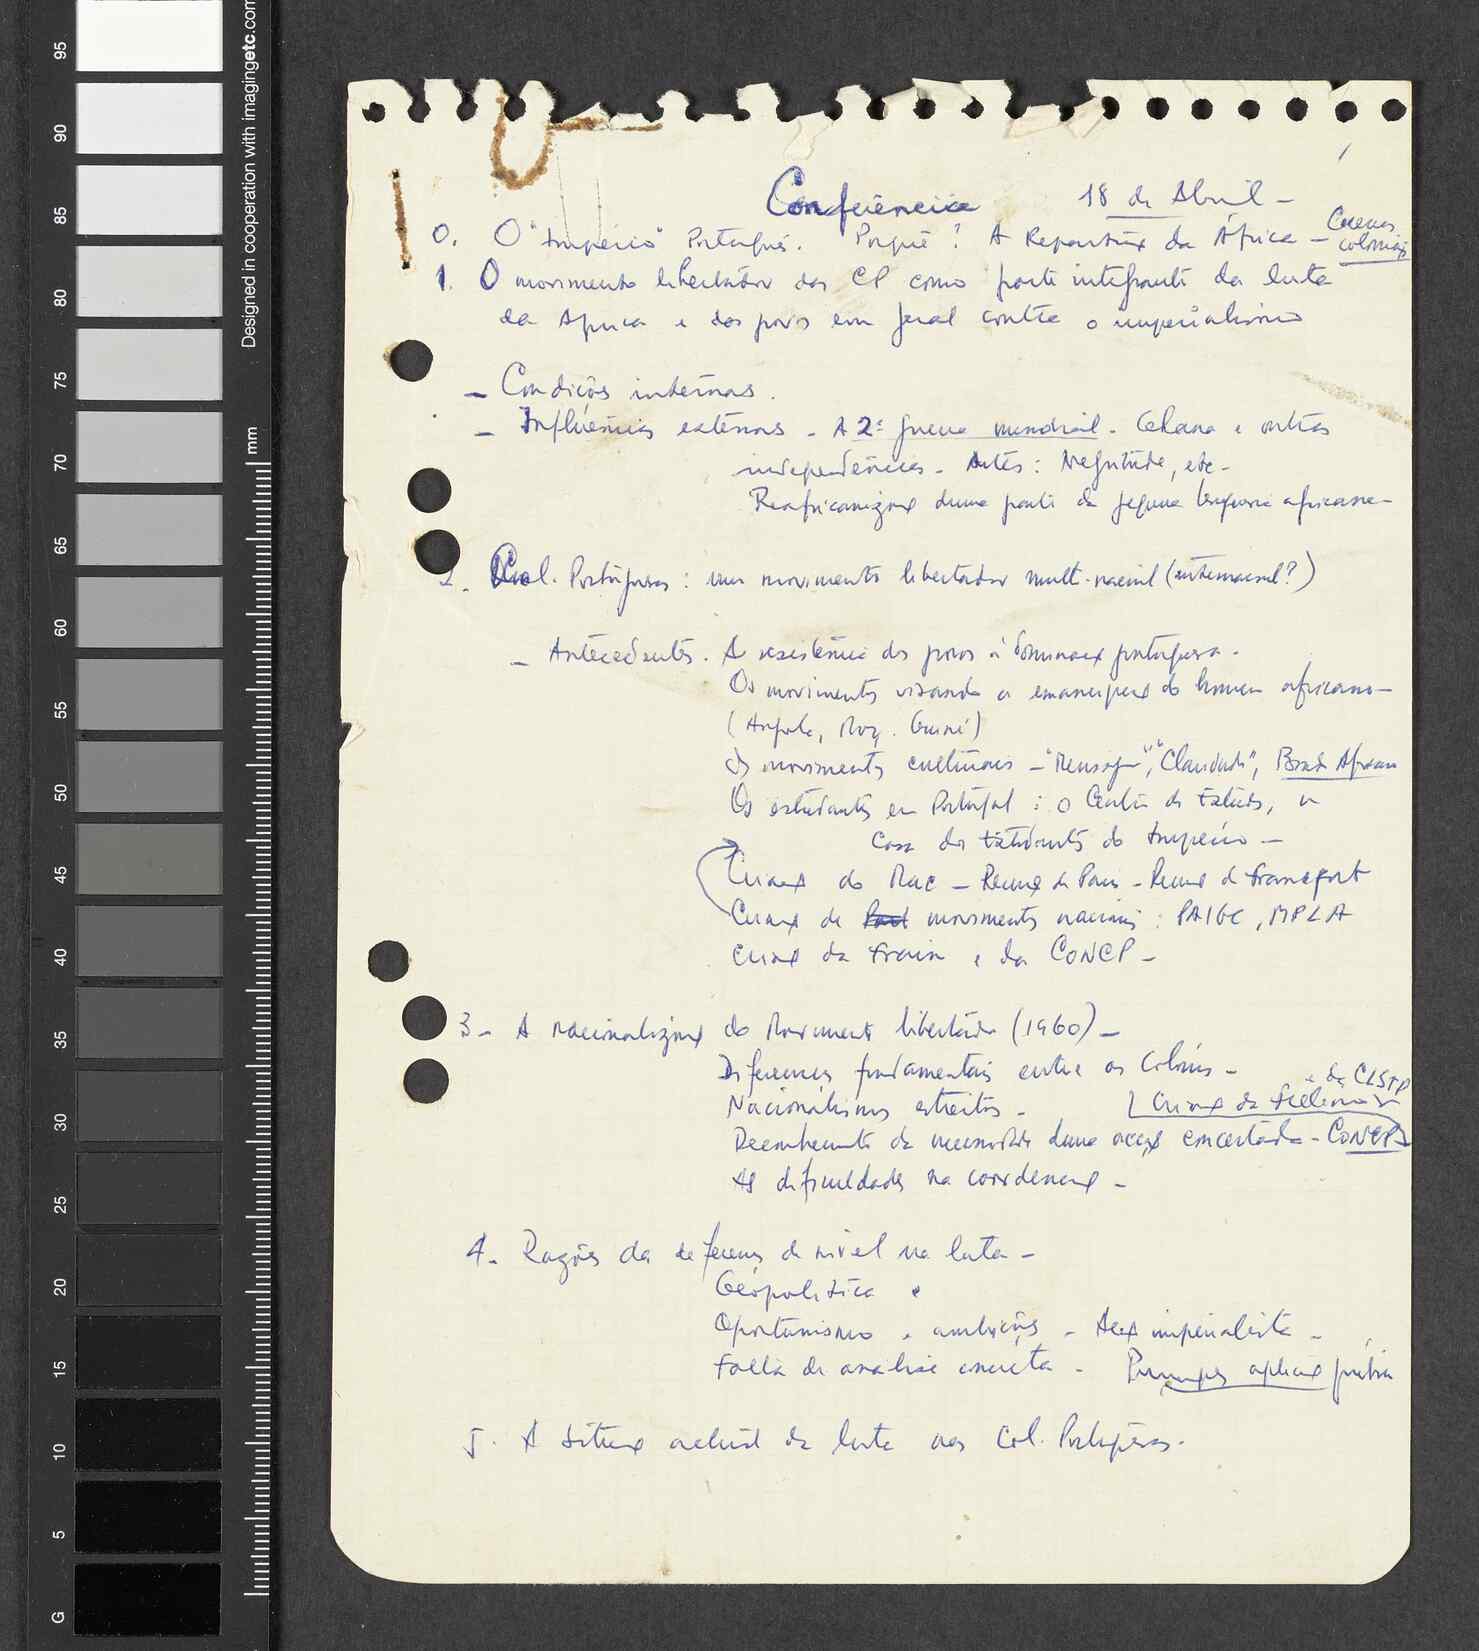 Conferência 18 de Abril -
0. O "Império" Português. Porquê? A Repartição da África - Guerras coloniais
1. O movimento libertador das CP como parte integrante da luta
da Africa e dos povos em geral contra o imperialismo
- Condições internas.
- Influências externas - A 2ª guerra mundial - Ghana e outras
independências - Antes: Negritude, etc -
Reafricanização duma parte da pequena burguesia africana -
2. Col. Portuguesas: um movimento libertador mult-nacional (internacional?)
- Antecedentes. A resistência dos povos à dominação portuguesa -
Os movimentos visando a emancipação do homem africano -
(Angola, Moç. Guiné)
Os movimentos culturais - "Mensagem", "Claridade",
Os estudantes em Portugal: o Centro de Estudos, a
Casa dos Estudantes do Império -
Criação do Mac - Reunião de Paris - Reunião de Francfort
Criação de movimentos nacionais: PAIGC, MPLA
Criação da Frain e da CONCP -
3 - A nacionalização do Movimento libertador (1960) -
Diferenças fundamentais entre as Colónias -
Nacionalismos estreitos - Criação da Frelimo e do CLSTP
Reconhecimento da necessidade duma acção concertada - CONCP
As dificuldades na coordenação -
4. Razões da diferença de nível na luta -
Géopolitica
Oportunismo e ambições - Acção imperialista -
Falta de análise concreta - Princípios aplicação prática
5. A situação actual da luta nas Col. Portuguesas.
Designed in cooperation with imagingetc.com
mm
95
90
85
80
75
70
65
60
55
50
45
40
35
30
25
20
15
10
5
G